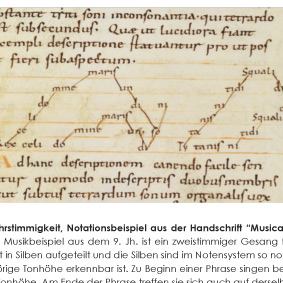 ostante triti soni inconsonantia. qui tetrardo
st subsecundus. Quae ut lucidiora fiant
xempli descriptione statuantur pro ut pos
t fieri subaspectum.
maris Squali
mine un tidi
li di
do so
maris Squali
do mine un di tidi
celi do so Ty tanis ni
Ad hanc descriptionem canendo facile sen
tur quomodo indescriptis duobus membris
ut subtus tetrardum sonum organalis uox
hrstimmigkeit, Notationsbeispiel aus der Handschrift "Musica
Musikbeispiel aus dem 9. Jh. ist ein zweistimmiger Gesang
t in Silben aufgeteilt und die Silben sind im Notensystem so no
örige Tonhöhe erkennbar ist. Zu Beginn einer Phrase singen be
Tonhöhe. Am Ende der Phrase treffen sie sich auch auf dersel